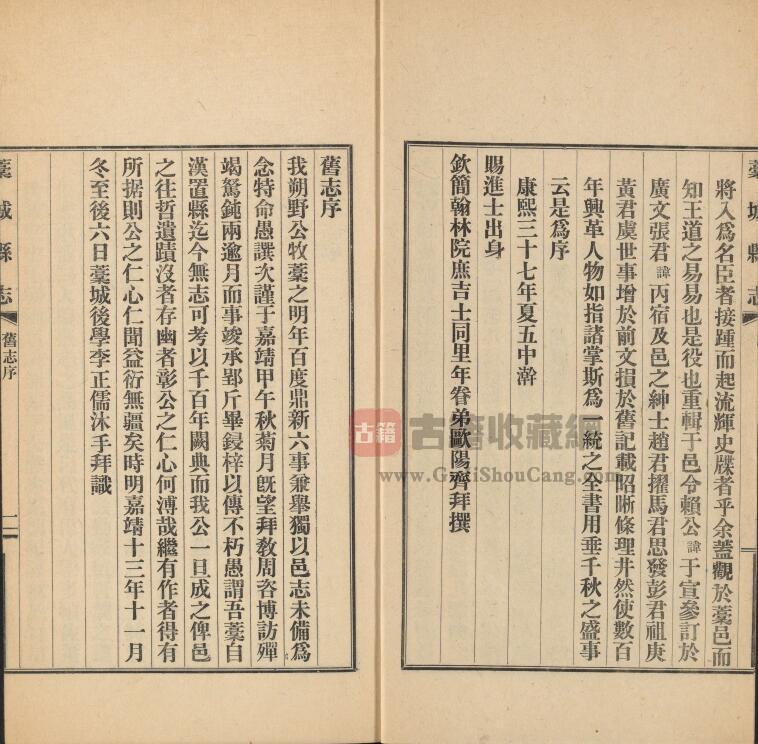 將入爲名臣者接踵而起流輝史牒者乎余蓋觀於藁邑而
知王道之易易也是役也重輯于邑令賴公諱于宣參訂於
廣文張君諱丙宿及邑之紳士趙君擢馬君思發彭君祖庚
黃君虞世事增於前文損於舊記載昭晰條理井然使數百
年興革人物如指諸掌斯爲一統之全書用垂千秋之盛事
云是爲序
康熙三十七年夏五中澣
賜進士出身
欽簡翰林院庶吉士同里年眷弟歐陽齊拜撰
藁城縣志
舊志序
我朔野公牧藁之明年百度鼎新六事兼舉獨以邑志未備爲
念特命愚譔次謹于嘉靖甲午秋菊月旣望拜敎周咨博訪殫
竭駑鈍兩逾月而事竣承郢斤畢鋟梓以傳不朽愚謂吾藁自
漢置縣迄今無志可考以千百年闕典而我公一旦成之俾邑
之往哲遺蹟沒者存幽者彰公之仁心何溥哉繼有作者得有
所据則公之仁心仁聞益衍無疆矣時明嘉靖十三年十一月
冬至後六日藁城後學李正儒沐手拜識
藁城縣志
舊志序
古籍
古籍收藏網
www.GuJiShouCang.com